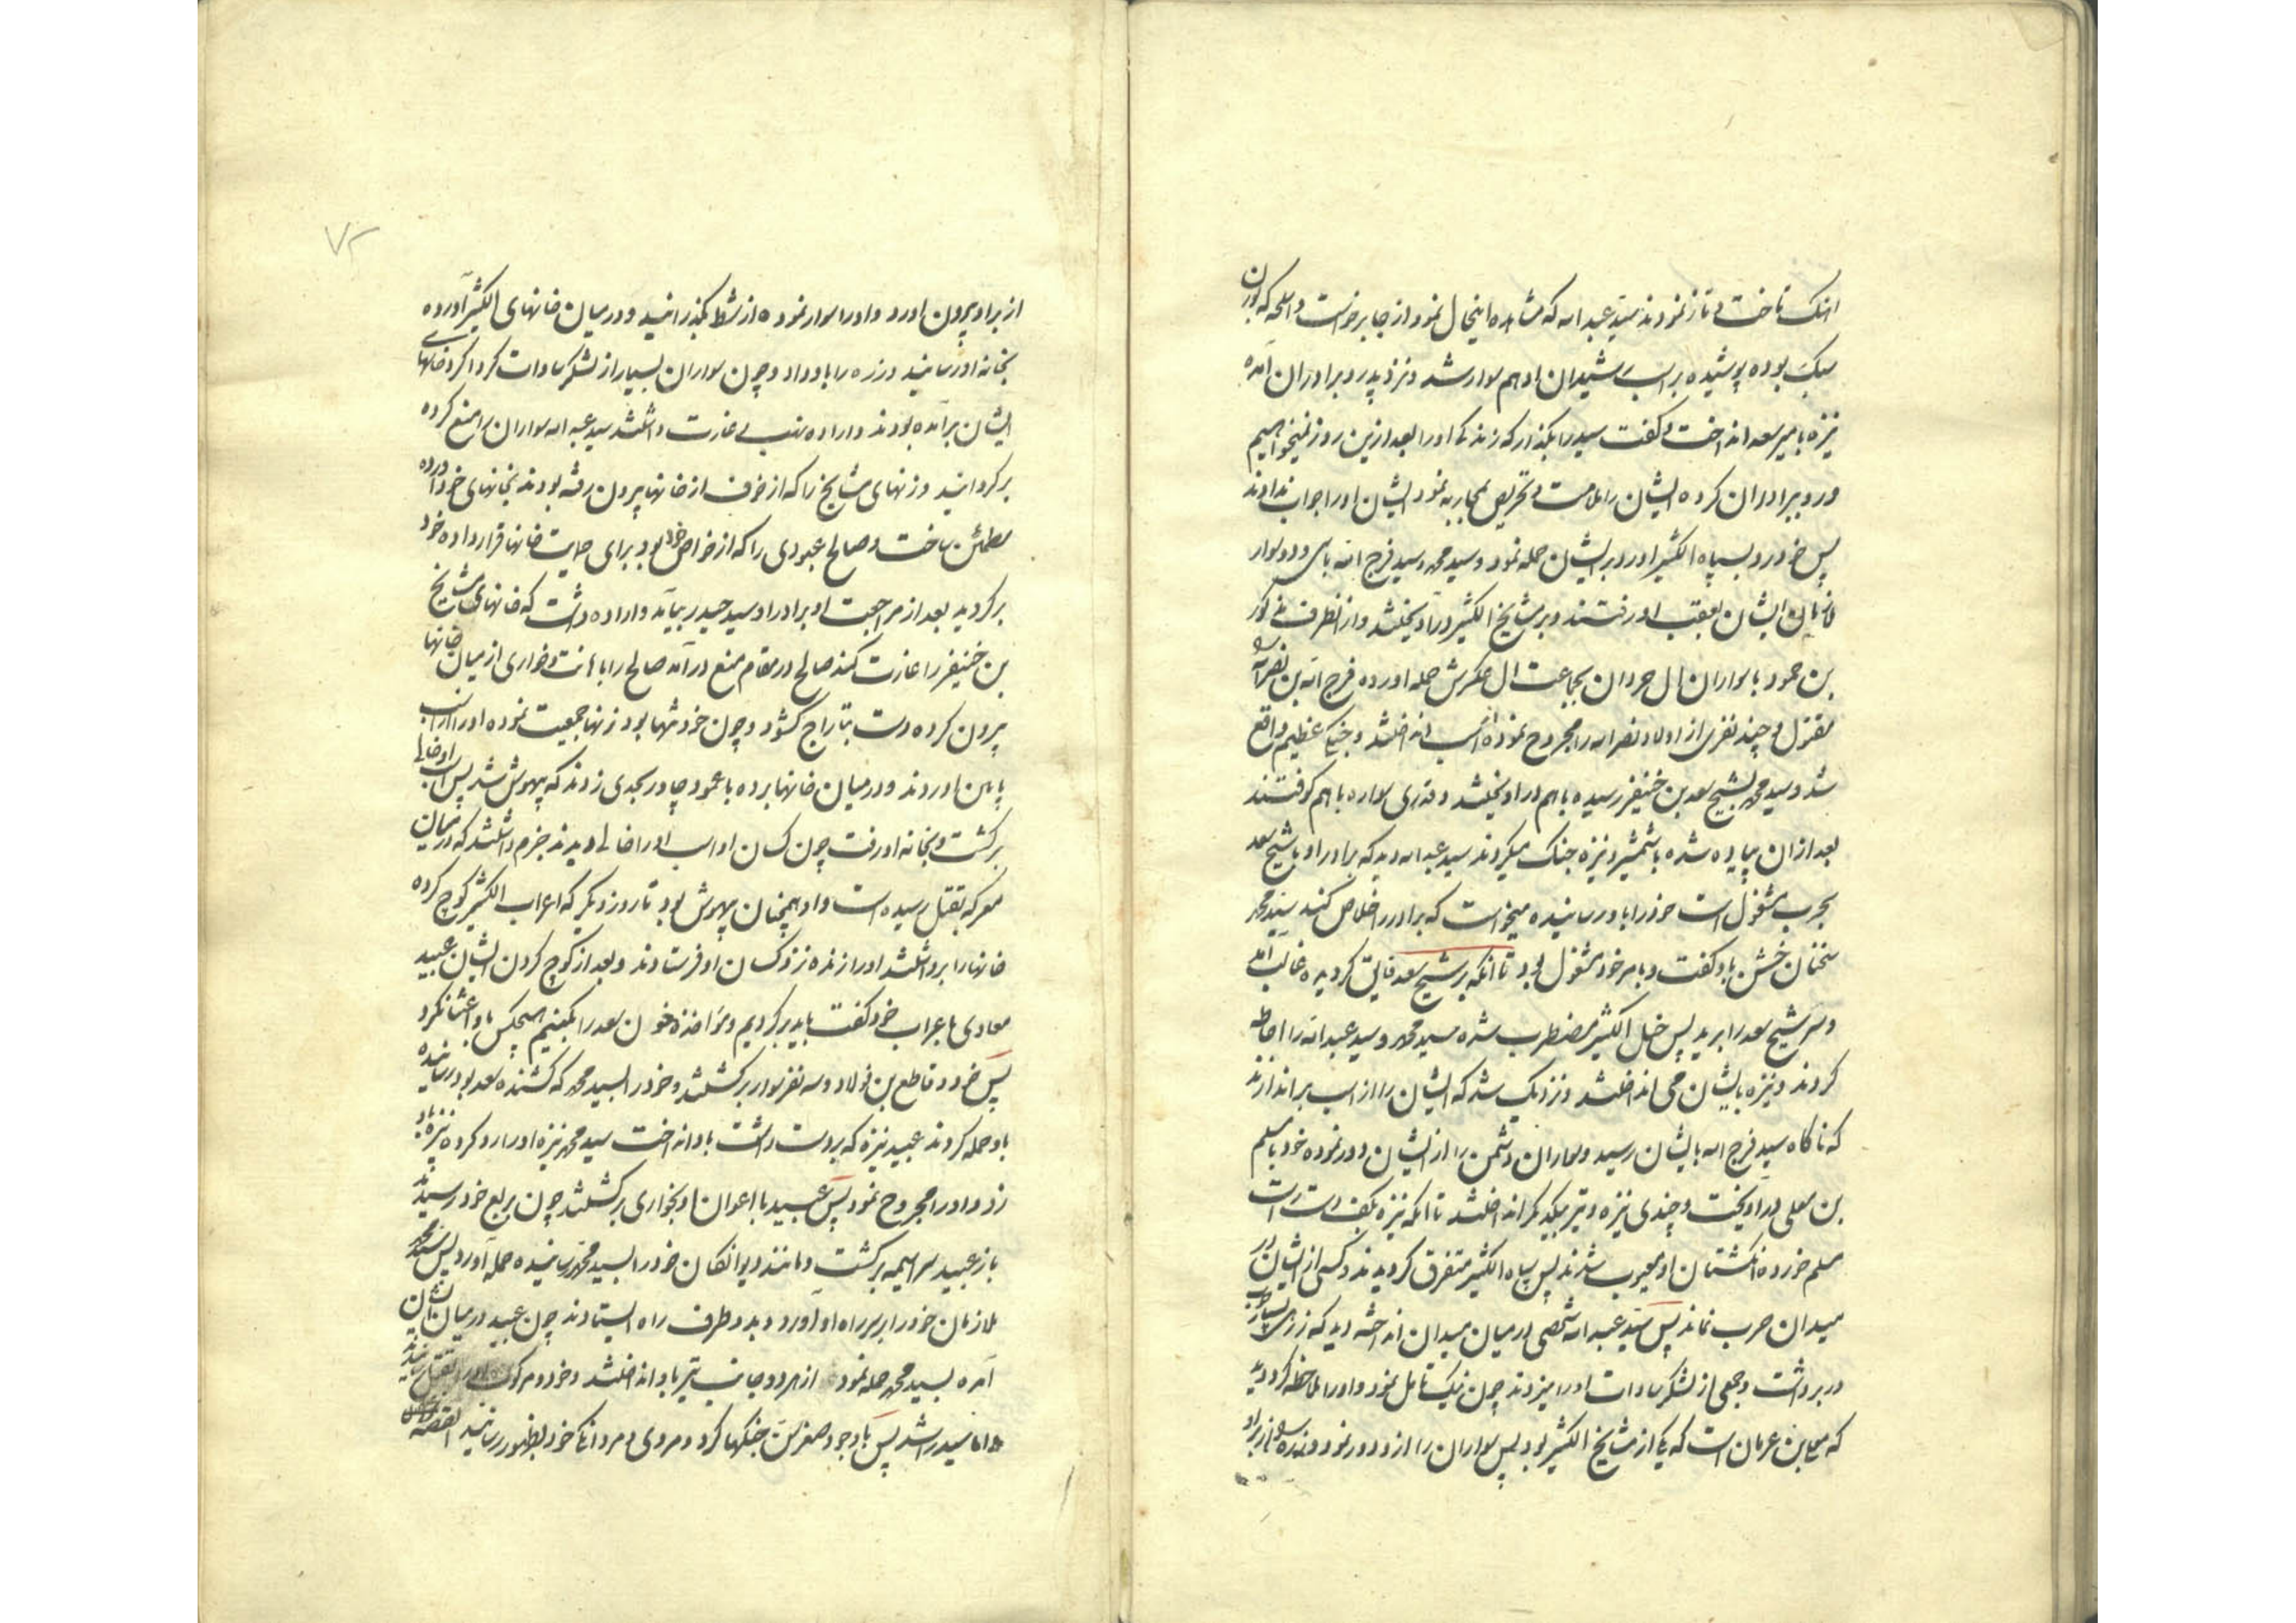 اهنک تاخت و تاز نمودند سید عبد الله که مشاهده اینحال نمود از جا برخواست و اسلحه که بدان
سبک بوده پوشیده بر اسب شیدان ادهم سوار شد و نزد پدر و برادران آمده
نیزه با میر سعد انداخت و گفت سید را بگذار که زندکی او را بعد ازین روز نمیخواهیم
و رو ببرادران کرده ایشان را ملامت و تحریص بمحاربه نمود ایشان او را جواب ندادند
پس خود رو بسپاه الکثیر آورد و بر ایشان حمله نمود و سید محمد و سید فرج الله با سی و دو سوار
ملازمان ایشان بعقب او رفتند و بر مشایخ الکثیر در آویختند و از آنطرف
بن حمود با سواران ال حردان بجماعت ال عکرش حمله آورده فرج الله بن نصر الله
مقتول و چند نفری از اولاد نصر الله را مجروح نموده از اسب انداختند و جنکی عظیم واقع
شد و سید محمد بشیخ سعد بن خنیفر رسیده با هم در آویختند و قدری سواره با هم کوفتند
بعد از آن پیاده شده با شمشیر و نیزه جنک میکردند سید عبد الله دید که برادر او با شیخ سعد
بحرب مشغول است خود را باو رسانیده میخواست که برادر را خلاص کند سید محمد
سخنان خشن باو گفت و بامر خود مشغول بود تا آنکه بر شیخ سعد فایق کردیده غالب آمد
و سر شیخ سعد را برید پس خیل الکثیر مضطرب شده سید محمد و سید عبد الله را احاطه
کردند و نیزه بایشان می انداختند و نزدیک شد که ایشان را از اسب براندازند
که ناگاه سید فرج الله بایشان رسید و سواران دشمن را از ایشان دور نموده خود با مسلم
بن معلی در آویخت و چندی نیزه و تیر بیکدیکر انداختند تا آنکه نیزه بکف دست راست
مسلم خورده انکشتان او معیوب شدند پس سپاه الکثیر متفرق کردیدند و کسی از ایشان در
میدان حرب نماند پس سید عبد الله شخصی در میان میدان انداخته دید که زرهی بسیار خوب
در بر داشت و جمعی از لشکر سادات او را میزدند چون نیک تامل نمود و او را ملاحظه کرد دید
که بن عرمان است که یکی از مشایخ الکثیر بود پس سواران را از او دور نمود و زره را از بر او
از بر او بیرون آورد و او را سوار نموده از شط بگذرانید و در میان خانهای الکثیر آورده
بخانه او رسانید و زره را باو داد و چون سواران بسیار از لشکر سادات کرداکرد خانهای
ایشان بر آمده بودند و اراده نهب و غارت داشتند سید عبد الله سواران را منع کرده
برکردانید و زنهای مشایخ را که از خوف از خانها بیرون رفته بودند بخانهای خود آورده
مطمئن ساخت و صالح عبودی را که از خواص خود بود برای حمایت خانها قرار داده خود
برکردید بعد از مراجعت او برادر او سید حیدر بیامد و اراده داشت که خانهای مشایخ
بن خنیفر را غارت کند صالح در مقام منع در آمد صالح را با هانت و خواری از میان خانها
بیرون کرده دست بتاراج کشود و چون خود تنها بود زنها جمعیت نموده او را از اسب
پایین آوردند و در میان خانها برده با عمود چادر بحدی زدند که بیهوش شد پس اسب او خالی
برکشت و بخانه او رفت چون کسان او اسب او را خالی دیدند جزم داشتند که در میان
معرکه بقتل رسیده است و او همچنان بیهوش بود تا روز دیکر که اعراب الکثیر کوچ کرده
خانها را برداشتند او را زنده نزد کسان او فرستادند و بعد از کوچ کردن ایشان عبید
معاوی باعراب خود گفت باید برکردیم و مؤاخذه خون سعد را بکنیم هیچکس باو اعتنا نکرد
پس خود و قاطع بن فولاد و سه نفر سوار برکشتند و خود را بسید محمد که کشنده سعد بود رسانیده
باو حمله کردند عبید نیزه که بر دست داشت باو انداخت سید محمد نیزه او را رد کرده نیزه باو
زد و او را مجروح نمود پس عبید با اعوان او بخواری برکشتند چون بربع خود رسیدند
باز عبید سراسیمه برکشت و مانند دیوانکان خود را بسید محمد رسانیده حمله آورد پس سید محمد
ملازمان خود را بر سر راه او آورد و بدو طرف راه ایستادند چون عبید در میان ایشان
آمده بسید محمد حمله نمود از هر دو جانب تیر باو انداختند و خود و مرکوب او را بقتل رسانیدند
و اما سید راشد پس با وجود صغر سن جنکها کرد و مردی و مردانکی خود بظهور رسانید القصه